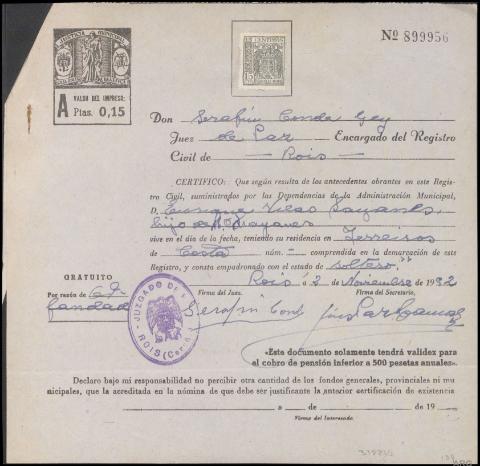 JUSTICIA MUNICIPAL
A VALOR DEL IMPRESO:
Ptas. 0,15
15 CENTIMOS
15
Nº 899956
Don Serafín Conda Gey
Juez de Paz Encargado del Registro
Civil de Rois
CERTIFICO: Que según resulta de los antecedentes obrantes en este Regis-
tro Civil, suministrados por las Dependencias de la Administración Municipal,
D. Enrique
hijo de
vive en el día de la fecha, teniendo su residencia en Ferreiros
de Costa núm. - comprendida en la demarcación de este
Registro, y consta empadronado con el estado de soltero "
GRATUITO
Rois a 2 de Noviembre de 1952
Por razón de
Firma del Juez.
Firma del Secretario,
Serafín Cond
JUZGADO DE P
ROIS (Cor
«Este documento solamente tendrá validez para
el cobro de pensión inferior a 500 pesetas anuales».
Declaro bajo mi responsabilidad no percibir otra cantidad de los fondos generales, provinciales ni mu
nicipales, que la acreditada en la nómina de que debe ser justificante la anterior certificación de existencia
a de de 19
Firma del Interesado.